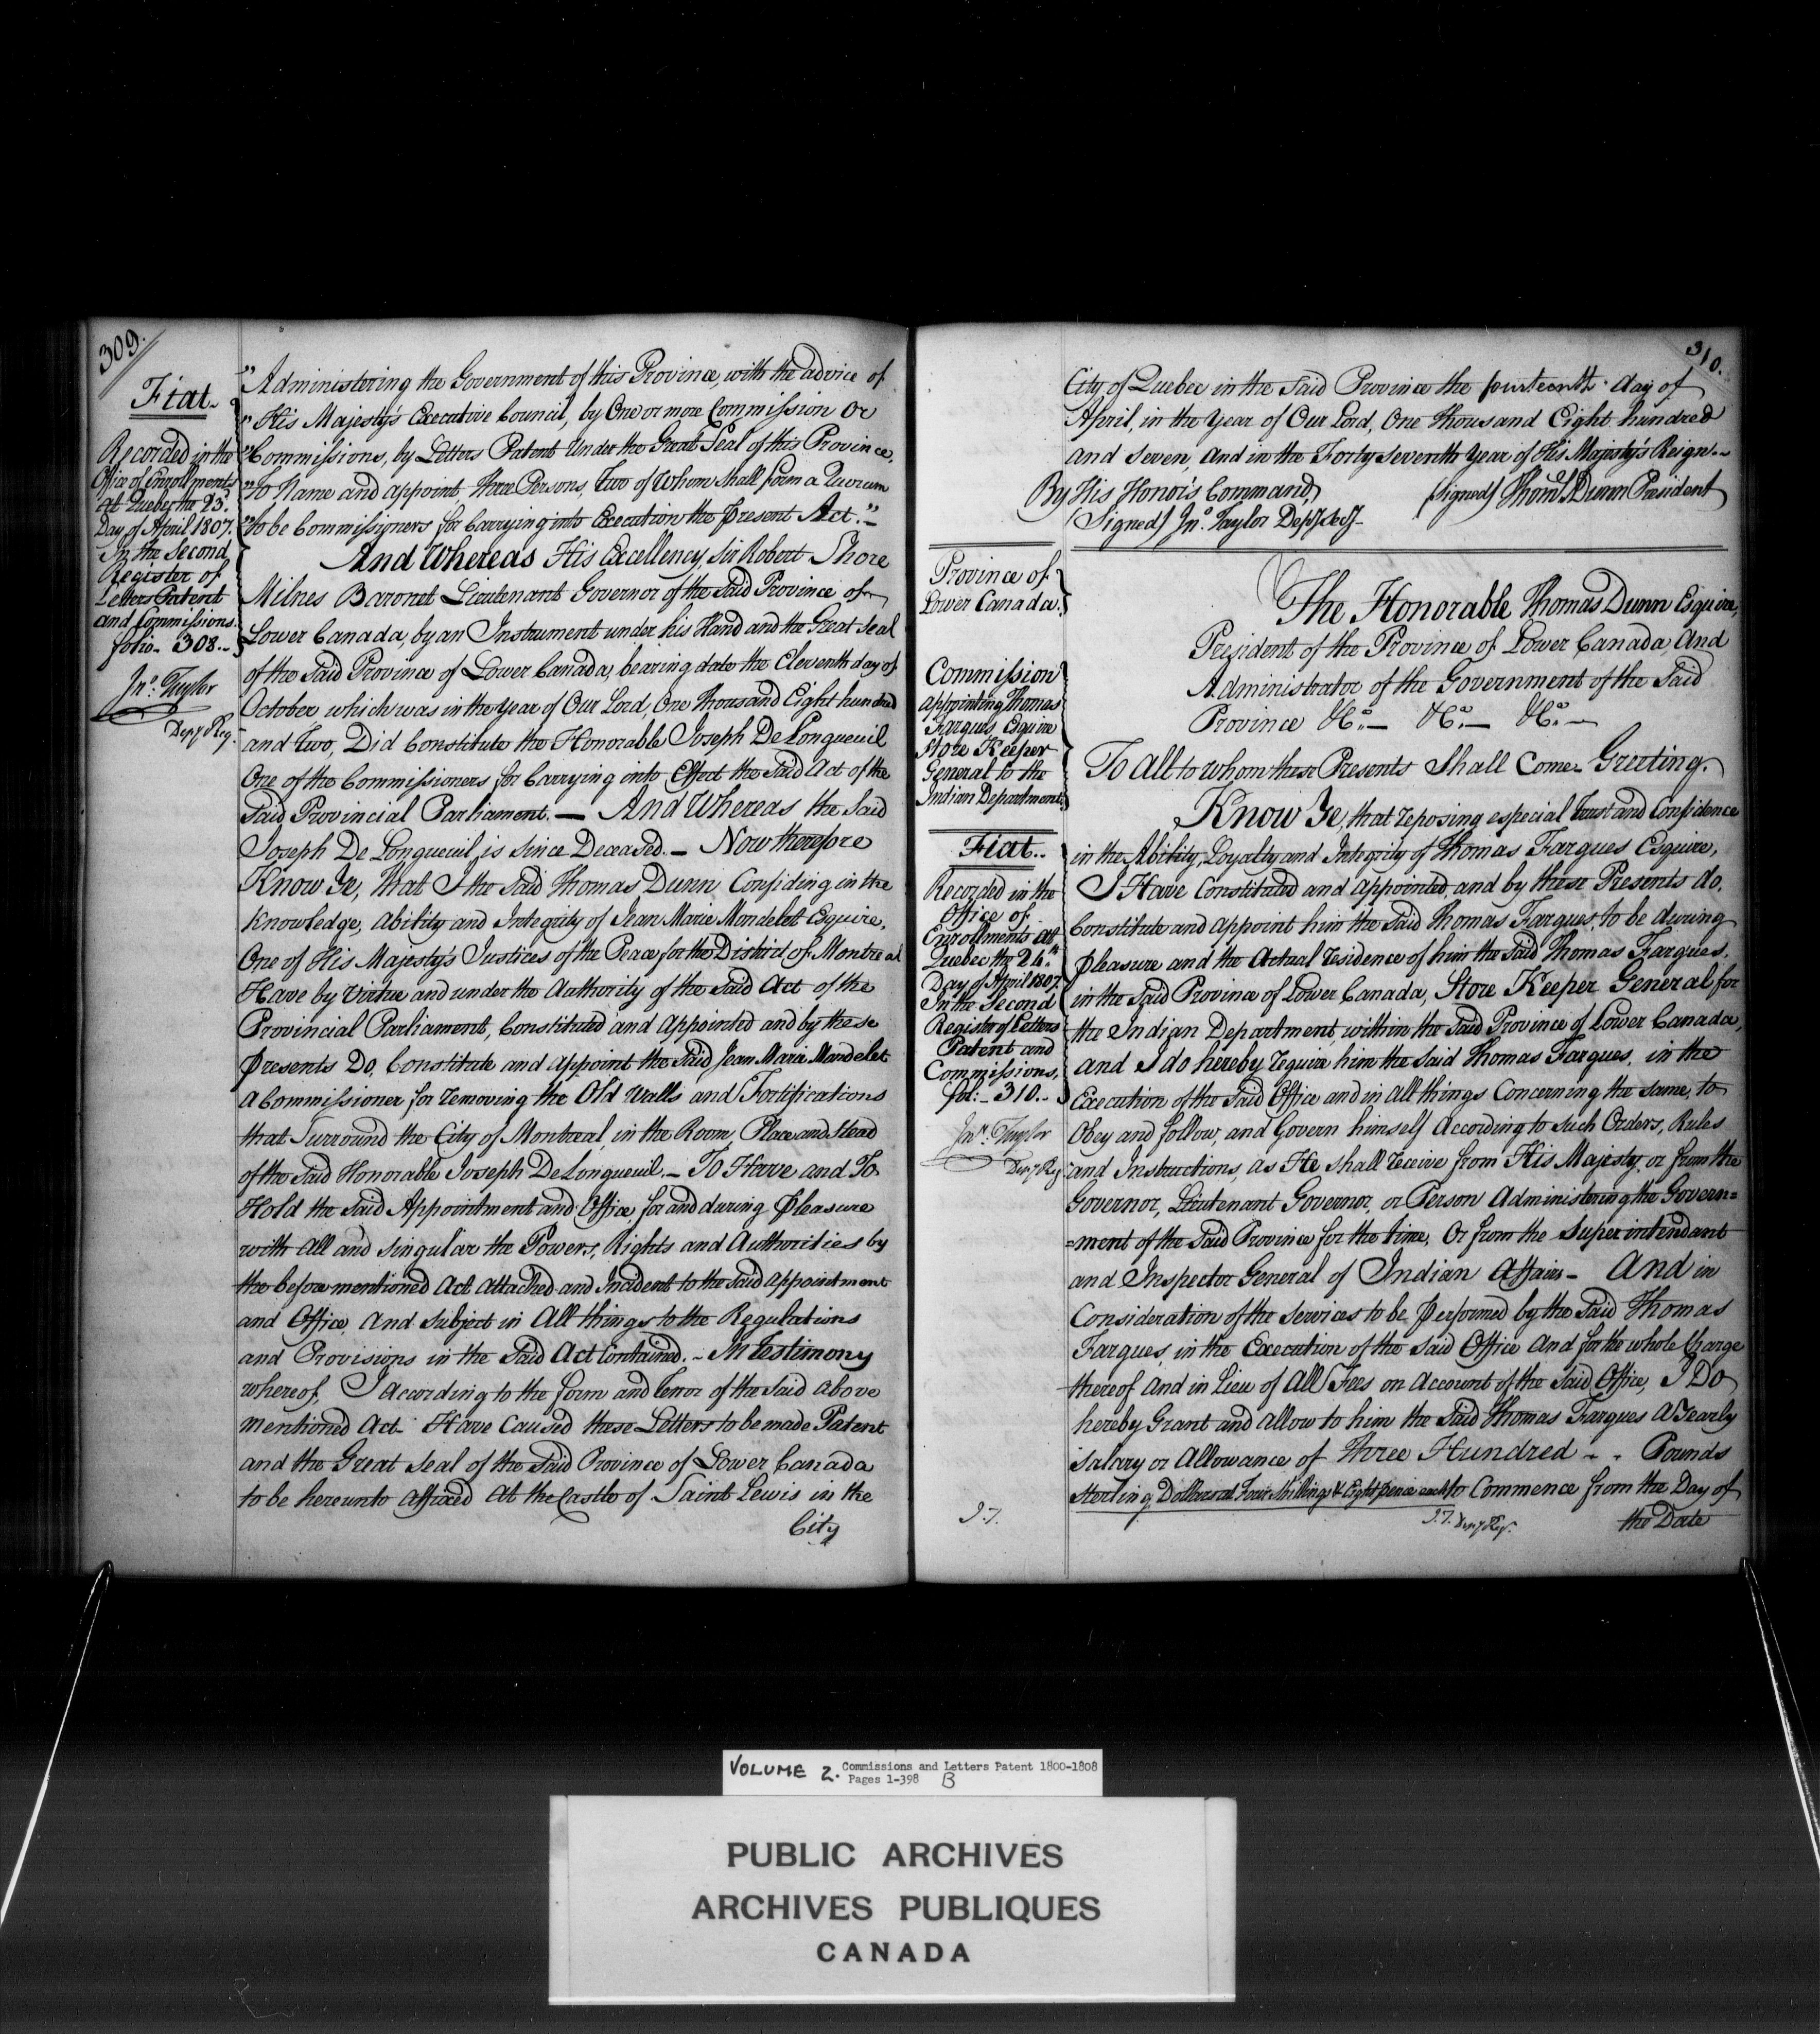 309.
Fiat.
Recorded in the
Office of Enrollments
at Quebec the 23.
Day of April 1807.
In the Second
Register of
Letters Patent
and Commissions.
folio - 308.-
Jno. Taylor
Depy Reg.
" Administering the Government of this Province, with the advice of
" His Majesty's Executive Council, by One or more Commission or
" Commissions, by Letters Patent Under the Great Seal of this Province,
" to Name and appoint, three Persons, Two of Whom shall form a Quorum
" to be Commissioners for Carrying into Execution the present Act."-
And Whereas His Excellency, Sir Robert Shore
Milnes Baronet Lieutenant Governor of the Said Province of
Lower Canada, by an Instrument under his Hand and the Great Seal
of the Said Province of Lower Canada, bearing date the Eleventh day of
October which was in the Year of Our Lord, One thousand Eight hundred
and two, Did Constitute the Honorable Joseph De Longueuil
One of the Commissioners for Carrying into Effect the Said Act of the
Said Provincial Parliament. — And Whereas the Said
Joseph De Longueuil, is since Deceased. — Now therefore
Know Ye, that I the Said Thomas Dunn Confiding in the
Knowledge, Ability and Integrity of Jean Marie Mondelet Esquire,
One of His Majesty's Justices of the Peace for the District of Montreal
Have by Virtue and under the Authority of the Said Act of the
Provincial Parliament, Constituted and Appointed and by these
presents Do, Constitute and Appoint the Said Jean Marie Mondelet
a Commissioner for removing the Old Walls and Fortifications
that Surround the City of Montreal, in the Room, Place and Stead
of the Said Honorable Joseph De Longueuil. — To Have and To
Hold the Said Appointment and Office, for and during pleasure
with all and singular the Powers, Rights and Authorities by
the before mentioned Act attached and Incident to the Said appointment
and Office, And Subject in All things to the Regulations
and Provisions in the Said Act Contained. - In Testimony
whereof, I According to the form and Tenor of the said above
mentioned Act. Have Caused these Letters to be made Patent
and the Great Seal of the Said Province of Lower Canada
to be hereunto affixed At the Castle of Saint Lewis in the
City
310.
City of Quebec in the Said Province the fourteenth day of
April, in the Year of Our Lord, One thousand Eight hundred
and Seven, And in the Forty Seventh Year of His Majesty's Reign.-
By His Honor's Command, (Signed) Thoms. Dunn President
(Signed) Jno. Taylor Depy Secy.
Province of
Lower Canada.
Commission
appointing Thomas
Fargues, Esquire
Store Keeper
General to the
Indian Department.
Fiat..
Recorded in the
Office of
Enrollments at
Quebec the 24th
Day of April 1807.
In the Second
Register of Letters
Patent and
Commissions,
fol: - 310.-
Jno. Taylor
Depy Reg
The Honorable Thomas Dunn Esquire,
President of the Province of Lower Canada, And
Administrator of the Government of the Said
Province &c.— &c.— &c.—
To All to Whom these Presents Shall Come - Greeting.
Know Ye, that reposing especial trust and Confidence
in the Ability, Loyalty and Integrity of Thomas Fargues Esquire,
I Have Constituted and Appointed and by these Presents do,
Constitute and Appoint him the Said Thomas Fargues, to be during
pleasure and the Actual residence of him the Said Thomas Fargues,
in the Said Province of Lower Canada, Store Keeper General for
the Indian Department, within the Said Province of Lower Canada,
and I do hereby require him the Said Thomas Fargues, in the
Execution of the Said Office and in All things Concerning the same, to
Obey and follow, and Govern himself According to such Orders, Rules
and Instructions, as He shall receive from His Majesty, or from the
Governor, Lieutenant Governor, or Person Administering the Govern=
=ment of the Said Province for the time, Or from the Superintendant
and Inspector General of Indian Affairs - And in
Consideration of the Services to be performed by the Said Thomas
Fargues, in the Execution of the said Office And for the whole Charge
thereof And in Lieu of All Fees on Account of the Said Office, I Do
hereby Grant and Allow to him the Said Thomas Fargues a Yearly
Salary or Allowance of Three Hundred - - Pounds
Sterling Dollars at Four Shillings & Eight pence each to Commence from the Day of
J.T. J.T. Depy Regr. the Date
VOLUME 2. Commissions and Letters Patent 1800-1808
Pages 1-398 B
PUBLIC ARCHIVES
ARCHIVES PUBLIQUES
CANADA